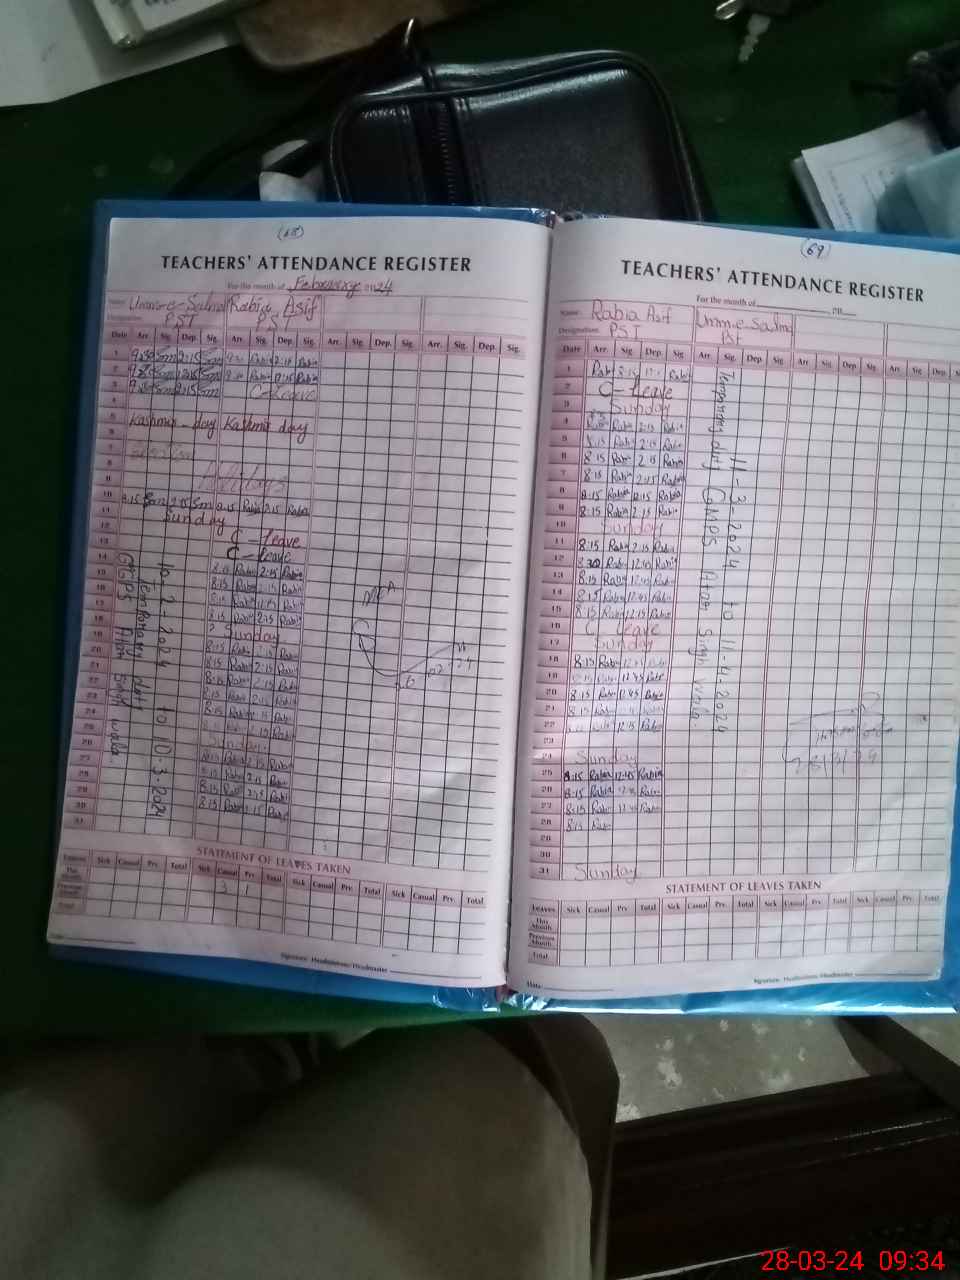 (68)
TEACHERS' ATTENDANCE REGISTER
For the month of February 2024
Name Umm-e-Salma Rabia Asif
Designation PST PST
Date Arr. Sig. Dep. Sig. Arr. Sig. Dep. Sig. Arr. Sig. Dep. Sig. Arr. Sig. Dep. Sig.
1
2
3 C-Leave
4
5 Kashmir - day Kashmir day
6
7
8
Holidays
10 8:15 Sm 2:15 Sm 8:15 Rabia 2:15 Rabia
11 Sunday
12 C - leave
13 C - leave
14 8:15 Rabia 2:15 Rabia
15 8:15 2:15 Rabia
16 8:15
17 8:15 Rabia 2:15 Rabia
Sunday
19 8:15 Rabia 2:15 Rabia
20 8:15 Rabia 2:15 Rabia
21 8:15 Rabia 2:15 Rabia
22 8:15 Rabia 2:15 Rabia
23 8:15 Rabia
24
25 Sunday
26 Rabia 2:15
27 8:15 Rabia 2:15
28 8:15 2:15
29 8:15 Rabia 2:15 Rabia
30
31
10.2.2024 to 10.3.2024
Temporary duty
GMPS Attari Singh wala
STATEMENT OF LEAVES TAKEN
Leaves Sick Casual Prv. Total Sick Casual Prv. Total Sick Casual Prv. Total Sick Casual Prv. Total
This Month 3 1
Previous Month
Total
Signature Headmistress/Headmaster
(69)
TEACHERS' ATTENDANCE REGISTER
For the month of 20
Name: Rabia Asif Umm-e-Salma
Designation: PST PST
Date Arr. Sig. Dep. Sig. Arr. Sig. Dep. Sig. Arr. Sig. Dep. Sig. Arr. Sig. Dep. Sig.
1
2 C - Leave
3 Sunday
4 Rabia 2:15 Rabia
5 8:15 Rabia 2:15 Rabia
6 8:15 Rabia 2:15 Rabia
7 8:15 Rabia 2:15 Rabia
8 8:15 Rabia 2:15 Rabia
9 8:15 Rabia 2:15 Rabia
10 Sunday
11 8:15 Rabia 2:15 Rabia
12 8:30 Rabia 12:45 Rabia
13 8:15 Rabia 12:45 Rabia
14 8:15 Rabia 12:45 Rabia
15 8:15 Rabia 12:45 Rabia
16 C - leave
17 Sunday
18 8:15 Rabia 12:45 Rabia
19 8:15 12:45 Rabia
20 8:15 Rabia 12:45 Rabia
21 8:15
22 Rabia
23
24 Sunday
25 8:15 Rabia 12:45 Rabia
26 8:15 Rabia 12:45 Rabia
27 8:15 Rabia 12:45 Rabia
28 8:15 Rabia
29
30
31 Sunday
11-3-2024 to 11-4-2024
Temporary duty GMPS Attari Singh Wala.
28/3/24
STATEMENT OF LEAVES TAKEN
Leaves Sick Casual Prv. Total Sick Casual Prv. Total Sick Casual Prv. Total Sick Casual Prv. Total
This Month
Previous Month
Total
Date
Signature Headmistress/Headmaster
28-03-24 09:34